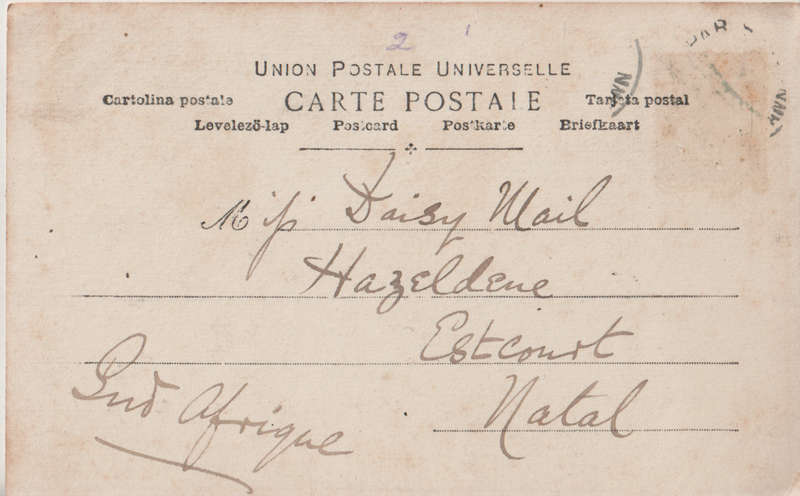 2
UNION POSTALE UNIVERSELLE
Cartolina postale CARTE POSTALE Tarjeta postal
Levelező-lap Postcard Postkarte Briefkaart
Miss Daisy Mail
Hazeldene
Estcourt
Natal
Sud Afrique